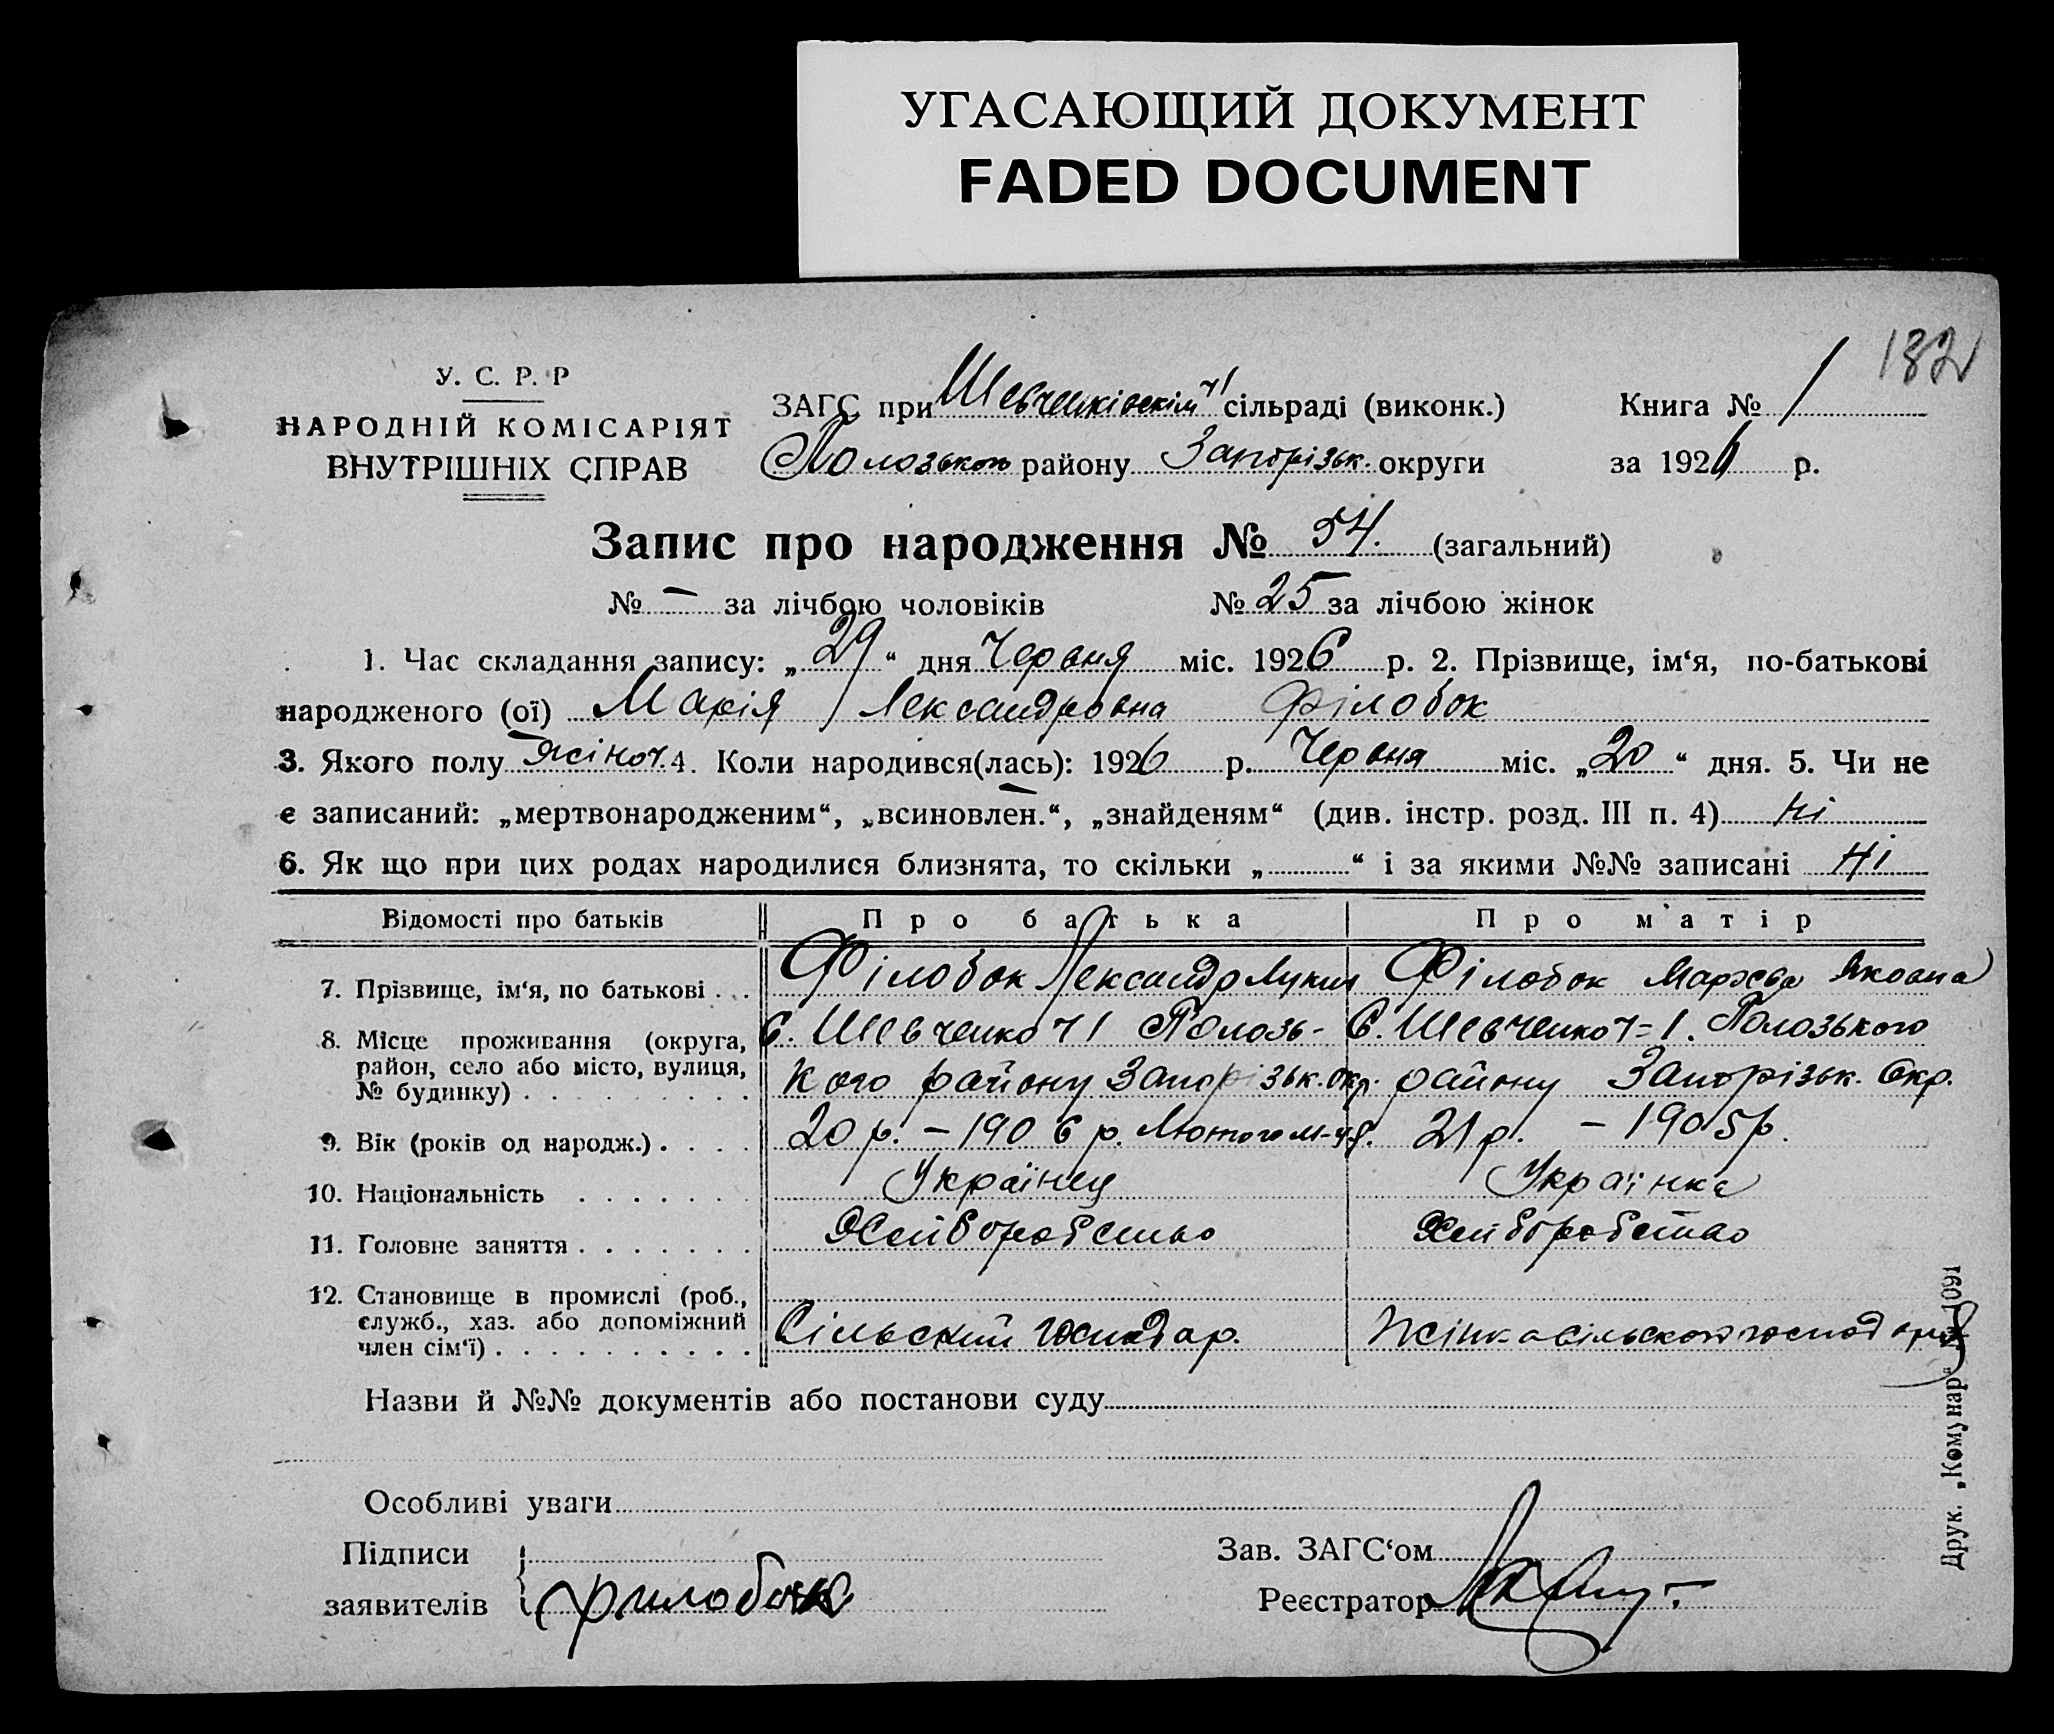 УГАСАЮЩИЙ ДОКУМЕНТ
FADED DOCUMENT
182
У. С. Р. Р
НАРОДНІЙ КОМІСАРІЯТ
ВНУТРІШНІХ СПРАВ
ЗАГС при Шевченківскім ч1 сільраді (виконк.) Книга № 1
Полозького району Запорізьк. округи за 1926 р.
Запис про народження № 54. (загальний)
№ — за лічбою чоловіків № 25 за лічбою жінок
1. Час складання запису: „29“ дня Червня міс. 1926 р. 2. Прізвище, ім‘я, по-батькові
народженого (ої) Марія Лександровна Філобок
3. Якого полу жіноч. 4. Коли народився(лась): 1926 р. Червня міс. „20“ дня. 5. Чи не
є записаний: „мертвонародженим“, „всиновлен.“, „знайденям“ (див. інстр. розд. III п. 4) ні
6. Як що при цих родах народилися близнята, то скільки „ “ і за якими №№ записані ні
Відомості про батьків Про батька Про матір
7. Прізвище, ім‘я, по батькові . . . Філобок Лександр Філобок Яковна
8. Місце проживання (округа, С. Шевченко ч1 Полозь- С. Шевченко ч=1. Полозького
район, село або місто, вулиця, кого району Запорізьк. окр. району Запорізьк. Окр.
№ будинку)
9. Вік (років од народж.) . . . . 20 р. – 1906 р. Лютого 21 р. – 1905 р.
10. Національність Українец Українка
11. Головне заняття Хлиборобство Хлиборобство
12. Становище в промислі (роб.,
служб., хаз. або допоміжний Сільский господар. Жінка сільского господаря
член сім‘ї)
Назви й №№ документів або постанови суду
Особливі уваги
Підписи Зав. ЗАГС‘ом
заявителів Филобок Реєстратор
Друк. „Комунар“ 1091